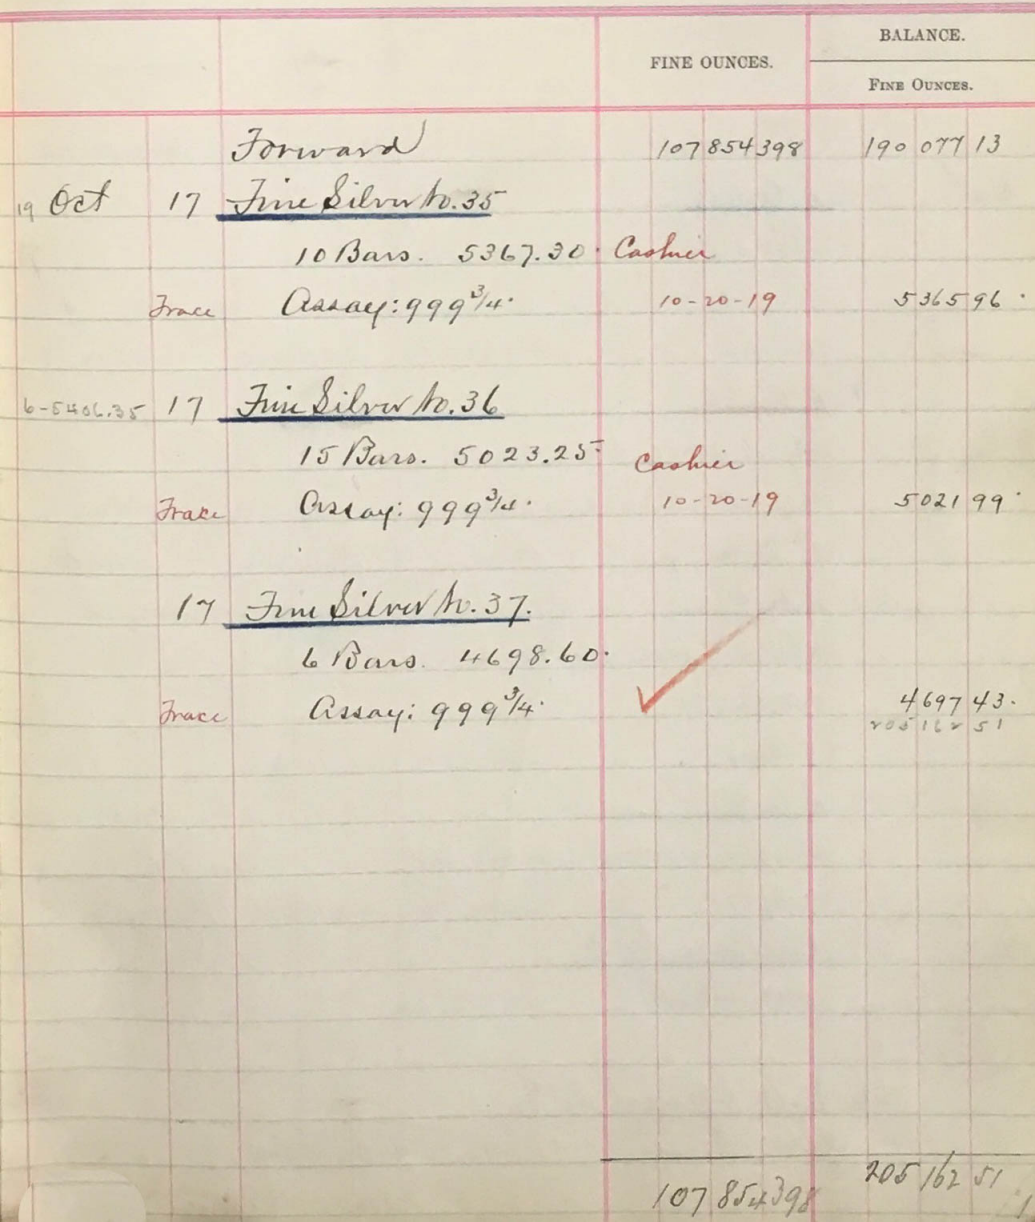 BALANCE.
FINE OUNCES.
FINE OUNCES.
Forward 107 854 398 190 077 13
19 Oct 17 Fine Silver No. 35
10 Bars. 5367.30. Cashier
Trace Assay: 999 3/4. 10-20-19 5 365 96.
6-5406.35 17 Fine Silver No. 36
15 Bars. 5023.25 Cashier
Trace Assay: 999 3/4. 10-20-19 5 021 99.
17 Fine Silver No. 37.
6 Bars. 4698.60.
Trace Assay: 999 3/4. 4 697 43.
205 162 51
205 162 51
107 854 398